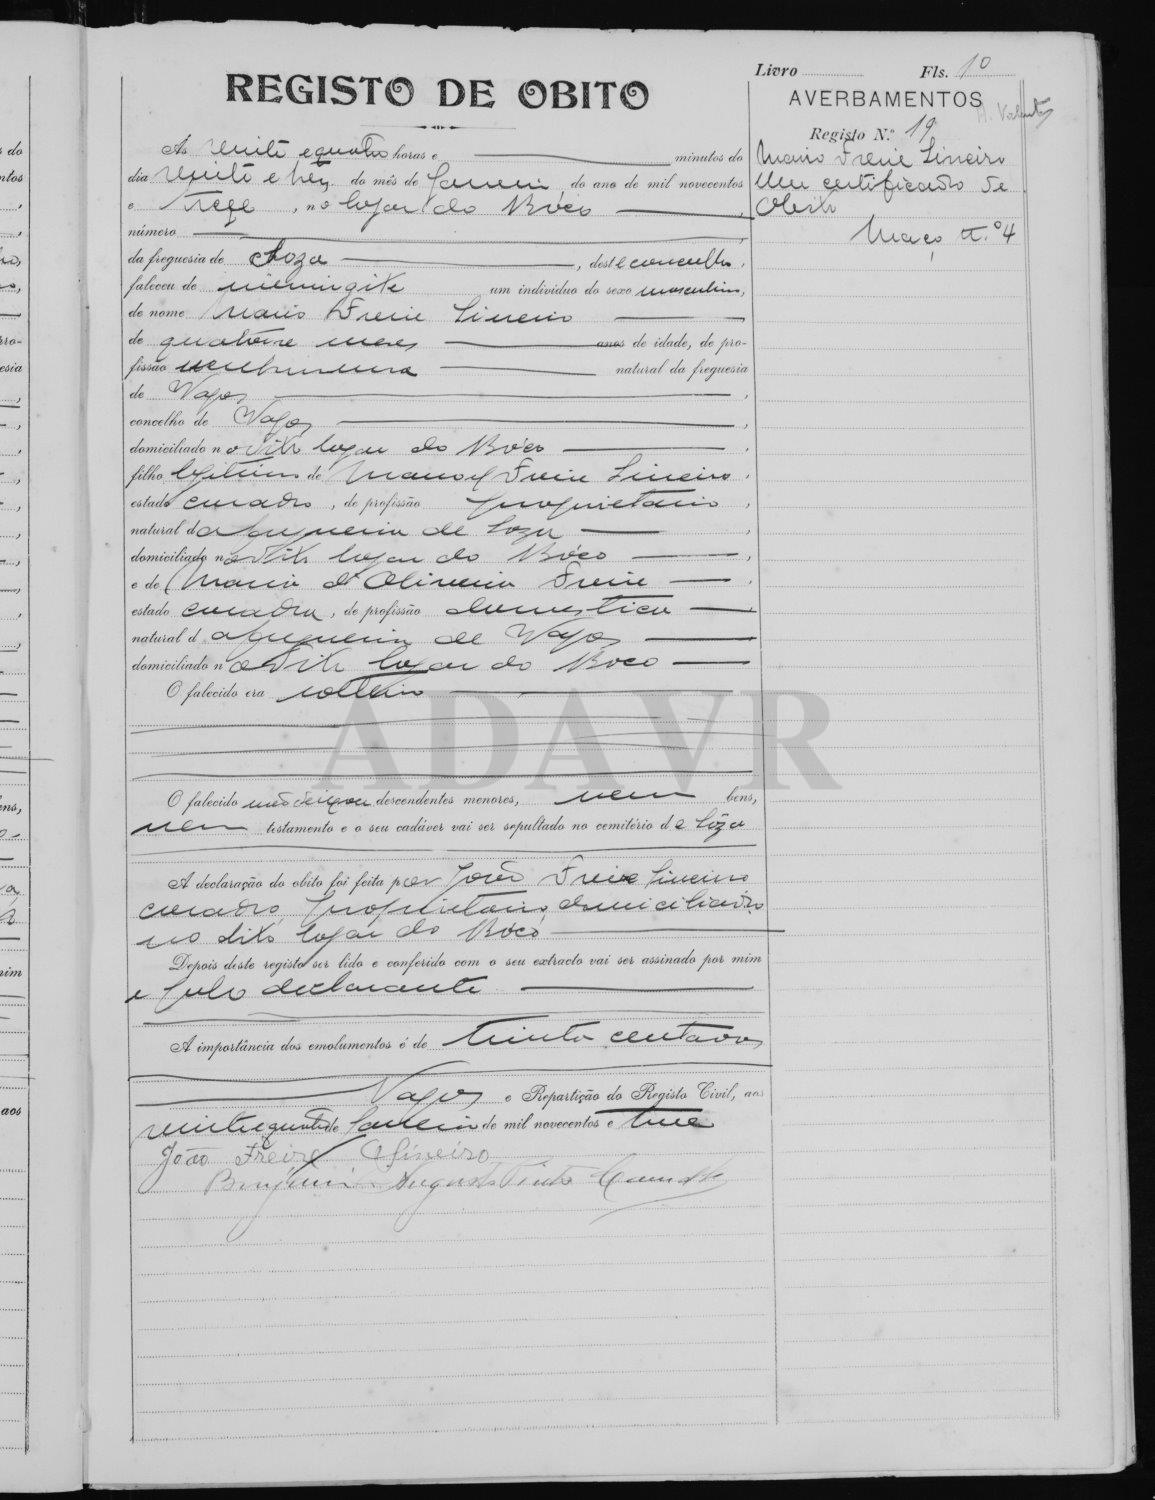 Livro
Fls. 10
REGISTO DE OBITO
AVERBAMENTOS
Registo N.º 19
Ás vinte e quatro horas e minutos do
dia vinte e tres do mês de Janeiro do ano de mil novecentos
e treze, no logar do Bóco
número
da freguesia de Soza, deste concelho,
faleceu de meningite um indivíduo do sexo masculino,
de nome Mario Freire Lineiro
de quatorze meses anos de idade, de pro-
fissão nenhuma natural da freguesia
de Vagos,
concelho de Vagos,
domiciliado no dito logar do Bóco,
filho legitimo de Manoel Freire Lineiro,
estado casado, de profissão proprietario,
natural da freguesia de Soza,
domiciliado no dito logar do Bóco,
e de Maria d'Oliveira Freire,
estado casada, de profissão domestica
natural da freguesia de Vagos
domiciliado no dito logar do Boco
O falecido era solteiro
O falecido não deixou descendentes menores, nem bens,
nem testamento e o seu cadáver vai ser sepultado no cemitério de Sôza
A declaração do obito foi feita por João Freire Lineiro
casado, proprietario, domiciliado
no dito logar do Bóco
Depois deste registo ser lido e conferido com o seu extracto vai ser assinado por mim
e pelo declarante
A importância dos emolumentos é de trinta centavos
Vagos e Repartição do Registo Civil, aos
vinte e quatro de Janeiro de mil novecentos e treze
João Freire Lineiro
Benjamim Augusto Pinto
Mario Freire Lineiro
Um certificado de
Obito
Maço n.º 4
ADAVR